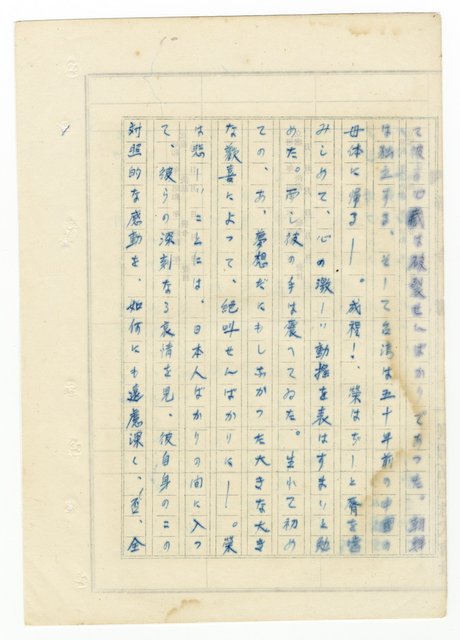 て彼の心臓は破裂せんばかりであつた。朝鮮
は独立する、そして台湾は五十年前の中国の
母体に帰る―。成程!、栄はぢーと脣を噛
みしめて、心の激しい動揺を表はすまいと勉
めた。而し彼の手は震へてゐた。生れて初め
ての、あゝ夢想だにもしなかつた大きな大き
な歓喜によつて、絶叫せんばかりに―。栄
は悲しいことには、日本人ばかりの間に入つ
て、彼らの深刻なる哀情を見、彼自身のこの
対照的な感動を、如何にも遠慮深く、否、全